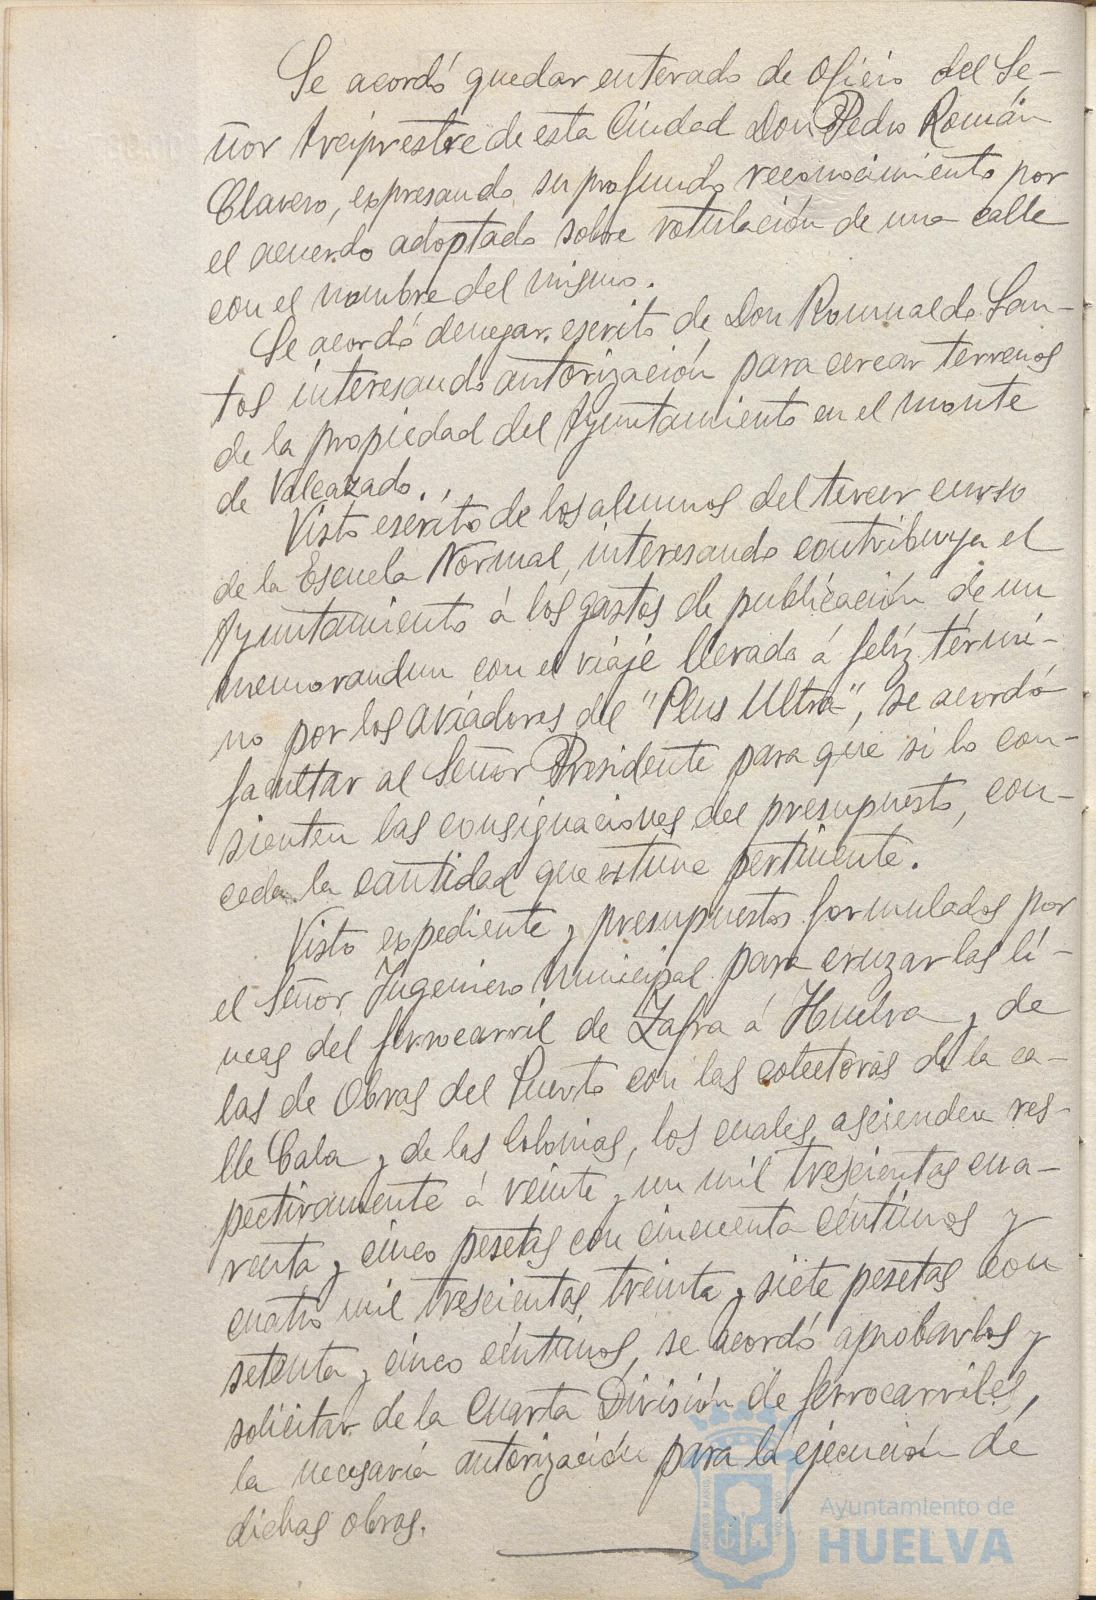 Se acordó quedar enterado de oficio del Se-
ñor Arciprestre de esta Ciudad Don Pedro Román
Clavero, expresando su profundo reconocimiento por
el acuerdo adoptado sobre rotulación de una calle
con el nombre del mismo.
Se acordó denegar escrito de Don Romualdo San-
tos interesando autorización para cercar terrenos
de la propiedad del Ayuntamiento en el monte
de Valcazado.
Visto escrito de los alumnos del tercer curso
de la Escuela Normal, interesando contribuya el
Ayuntamiento á los gastos de publicación de un
memorandun con el viaje llevado á felíz térmi-
no por los aviadores del "Plus Ultra", se acordó
facultar al Señor Presidente para que si lo con-
sienten las consignaciones del presupuesto, con-
ceda la cantidad que estime pertinente.
Visto expediente y presupuestos formulados por
el Señor Ingeniero Municipal para cruzar las lí-
neas del ferrocarril de Zafra á Huelva y de
las de Obras del Puerto con las colectoras de la ca-
lle Cala y de las Colonias, los cuales ascienden res-
pectivamente á veinte y un mil trescientas cua-
renta y cinco pesetas con cincuenta céntimos y
cuatro mil trescientas treinta y siete pesetas con
setenta y cinco céntimos, se acordó aprobarlos y
solicitar de la Cuarta División de ferrocarriles,
la necesaria autorización para la ejecución de
dichas obras.
Ayuntamiento de
HUELVA